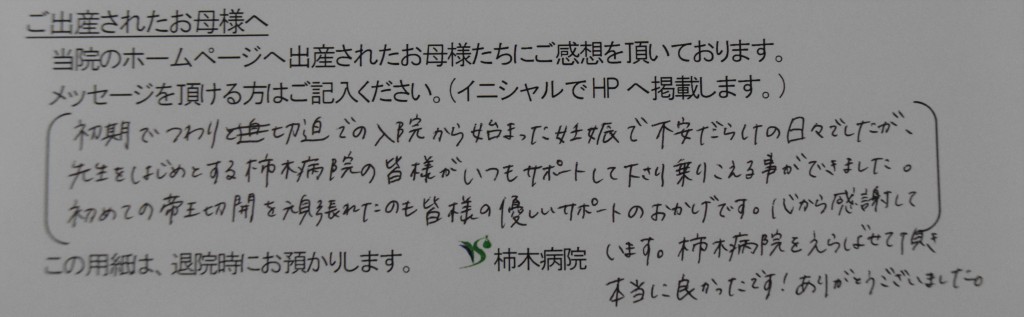 ご出産されたお母様へ
当院のホームページへ出産されたお母様たちにご感想を頂いております。
メッセージを頂ける方はご記入ください。（イニシャルでHPへ掲載します。）
初期でつわりと切迫での入院から始まった妊娠で不安だらけの日々でしたが、
先生をはじめとする柿木病院の皆様がいつもサポートして下さり乗りこえる事ができました。
初めての帝王切開を頑張れたのも皆様の優しいサポートのおかげです。心から感謝して
います。柿木病院をえらばせて頂き
本当に良かったです！ありがとうございました。
この用紙は、退院時にお預かりします。
柿木病院